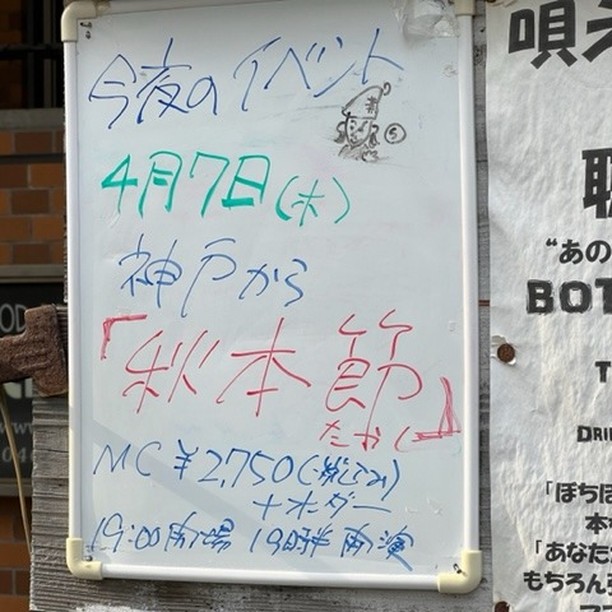 今夜のイベント
4月7日(木)
神戸から
「秋本節」
たかし
MC ¥2,750(税込み)
+オーダー
19:00開場 19時半開演
唄え
"あの
BOT
T
DRI
「ぼちぼ
本
「あなた
もちろん